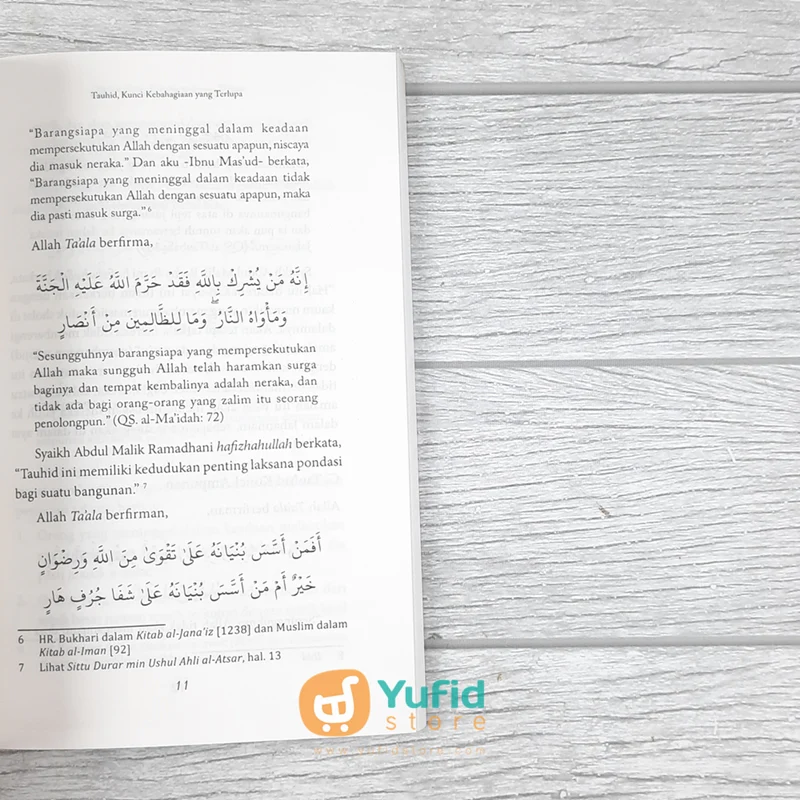 Tauhid, Kunci Kebahagiaan yang Terlupa
"Barangsiapa yang meninggal dalam keadaan
mempersekutukan Allah dengan sesuatu apapun, niscaya
dia masuk neraka." Dan aku -Ibnu Mas'ud- berkata,
"Barangsiapa yang meninggal dalam keadaan tidak
mempersekutukan Allah dengan sesuatu apapun, maka
dia pasti masuk surga." 6
Allah Ta'ala berfirma,
إِنَّهُ مَنْ يُشْرِكْ بِاللَّهِ فَقَدْ حَرَّمَ اللَّهُ عَلَيْهِ الْجَنَّةَ
وَمَأْوَاهُ النَّارُ ۖ وَمَا لِلظَّالِمِينَ مِنْ أَنْصَارٍ
"Sesungguhnya barangsiapa yang mempersekutukan
Allah maka sungguh Allah telah haramkan surga
baginya dan tempat kembalinya adalah neraka, dan
tidak ada bagi orang-orang yang zalim itu seorang
penolongpun." (QS. al-Ma'idah: 72)
Syaikh Abdul Malik Ramadhani hafizhahullah berkata,
"Tauhid ini memiliki kedudukan penting laksana pondasi
bagi suatu bangunan." 7
Allah Ta'ala berfirman,
أَفَمَنْ أَسَّسَ بُنْيَانَهُ عَلَىٰ تَقْوَىٰ مِنَ اللَّهِ وَرِضْوَانٍ
خَيْرٌ أَمْ مَنْ أَسَّسَ بُنْيَانَهُ عَلَىٰ شَفَا جُرُفٍ هَارٍ
6 HR. Bukhari dalam Kitab al-Jana'iz [1238] dan Muslim dalam
Kitab al-Iman [92]
7 Lihat Sittu Durar min Ushul Ahli al-Atsar, hal. 13
11
Yufid
store